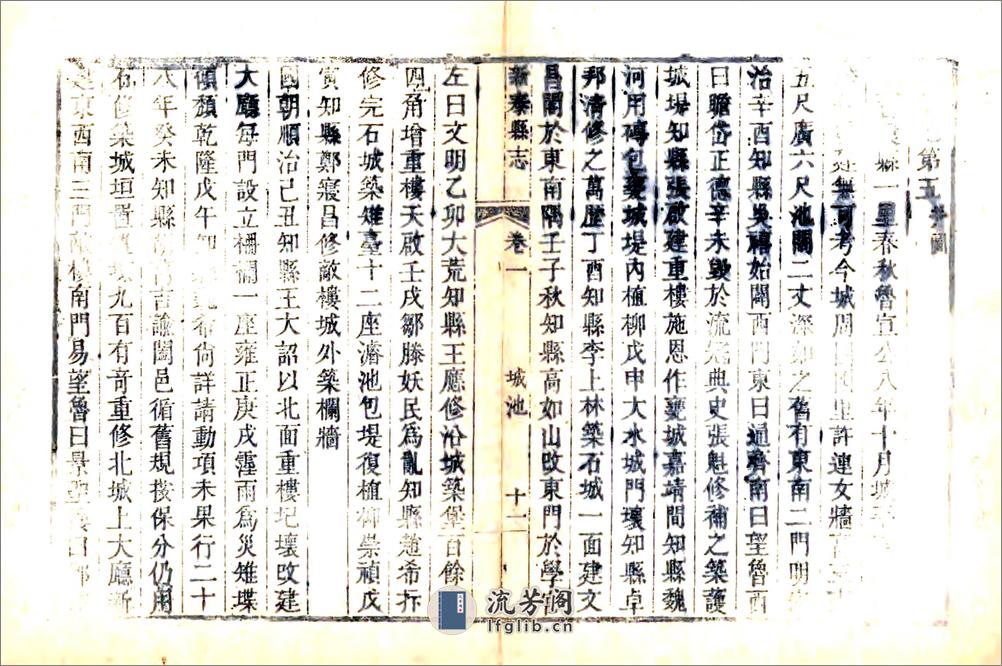 第五 并圖
縣一里春秋魯宣公八年十月城平
無可考今城周四里許連女牆高
五尺廣六尺池闊二丈深如之舊有東南二門明
治辛酉知縣吳禧始闢西門東曰通齊南曰望魯西
曰瞻岱正德辛未毀於流寇典史張魁修補之築護
城堤知縣張啟建重樓施恩作甕城嘉靖間知縣魏
河用磚包甕城堤內植柳戊申大水城門壞知縣卓
邦清修之萬曆丁酉知縣李上林築石城一面建文
昌閣於東南隅壬子秋知縣高如山改東門於學宮
新泰縣志 卷一 城池 十一
左曰文明乙卯大荒知縣王應修沿城築堡百餘
四角增重樓天啟壬戌鄒滕妖民爲亂知縣趙希抃
修完石城築雉臺十二座濬池包堤復植柳崇禎戊
寅知縣鄭寖昌修敵樓城外築欄牆
國朝順治己丑知縣王大詔以北面重樓圮壞改建
大廳每門設立柵欄一座雍正庚戌霪雨爲災雉堞
傾頹乾隆戊午知縣 希尚詳請動項未果行二十
八年癸未知縣 諭闔邑循舊規按保分仍用
石復築城垣置 九百有奇重修北城上大廳新
建東西南三門 樓南門易望魯曰景聖
流芳閣
lfglib.cn